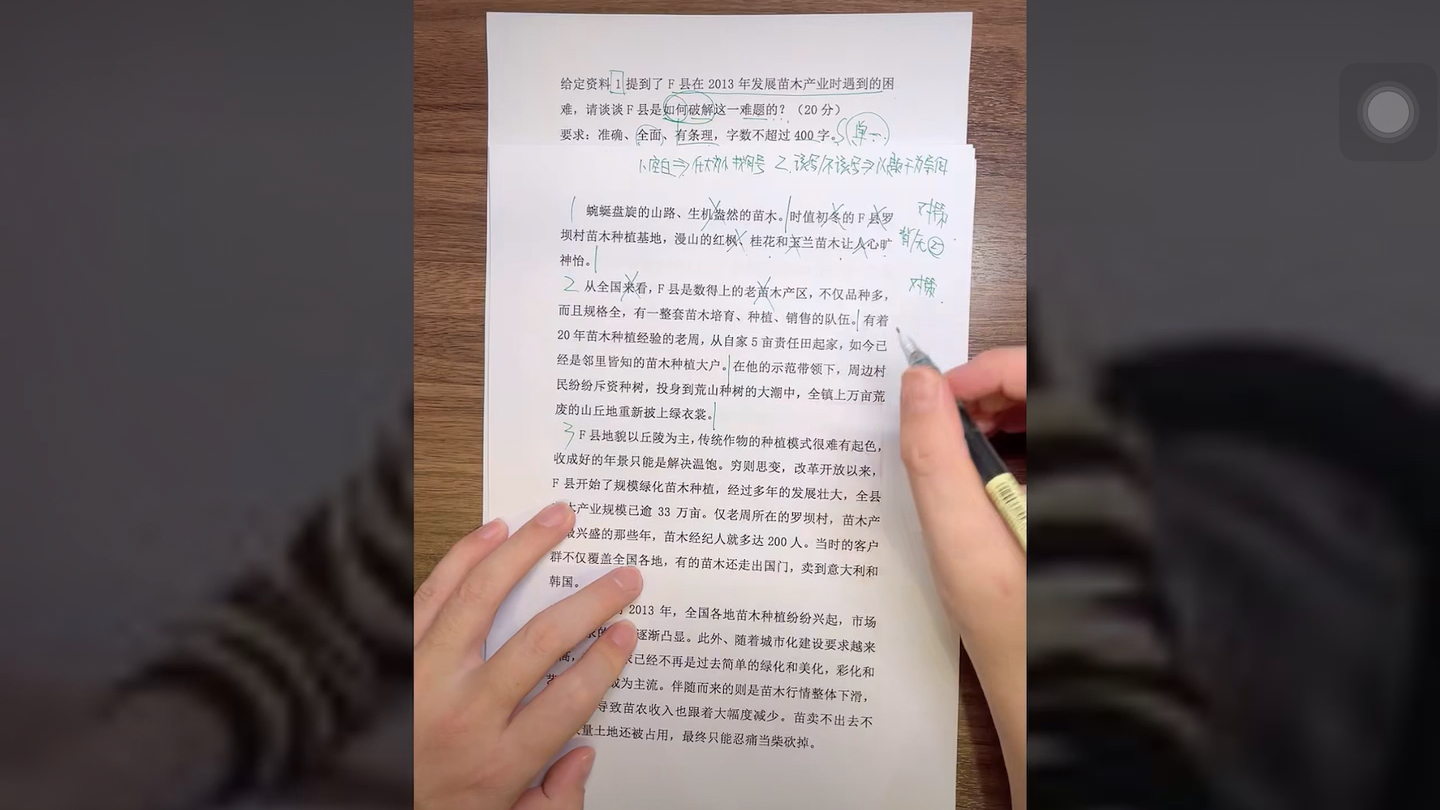 给定资料1提到了F县在2013年发展苗木产业时遇到的困
难，请谈谈F县是如何破解这一难题的？（20分）
要求：准确、全面、有条理，字数不超过400字。 单一
1.空白⇒ 找句号 2.该写/不该写⇒以题干为条件
1 蜿蜒盘旋的山路、生机盎然的苗木。时值初冬的F县罗 对策
坝村苗木种植基地，漫山的红枫、桂花和玉兰苗木让人心旷
神怡。
2 从全国来看，F县是数得上的老苗木产区，不仅品种多， 对策
而且规格全，有一整套苗木培育、种植、销售的队伍。有着
20年苗木种植经验的老周，从自家5亩责任田起家，如今已
经是邻里皆知的苗木种植大户。在他的示范带领下，周边村
民纷纷斥资种树，投身到荒山种树的大潮中，全镇上万亩荒
废的山丘地重新披上绿衣裳。
3 F县地貌以丘陵为主，传统作物的种植模式很难有起色，
收成好的年景只能是解决温饱。穷则思变，改革开放以来，
F县开始了规模绿化苗木种植，经过多年的发展壮大，全县
木产业规模已逾33万亩。仅老周所在的罗坝村，苗木产
兴盛的那些年，苗木经纪人就多达200人。当时的客户
群不仅覆盖全国各地，有的苗木还走出国门，卖到意大利和
韩国。
2013年，全国各地苗木种植纷纷兴起，市场
逐渐凸显。此外、随着城市化建设要求越来
已经不再是过去简单的绿化和美化，彩化和
成为主流。伴随而来的则是苗木行情整体下滑，
导致苗农收入也跟着大幅度减少。苗卖不出去不
量土地还被占用，最终只能忍痛当柴砍掉。